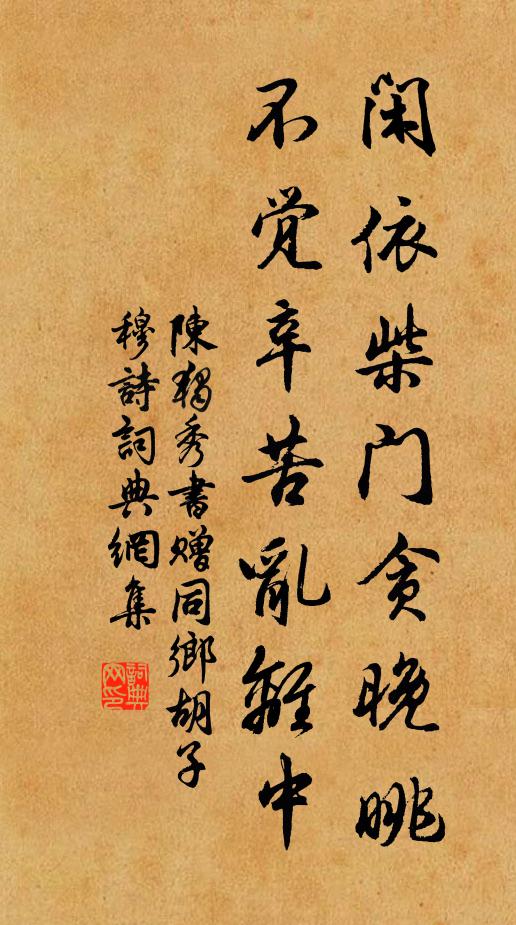 闲依柴门贪晚眺
不覚辛苦亂離中
陳獨秀書贈同鄉胡子
穆詩詞典網集
詞典
网印